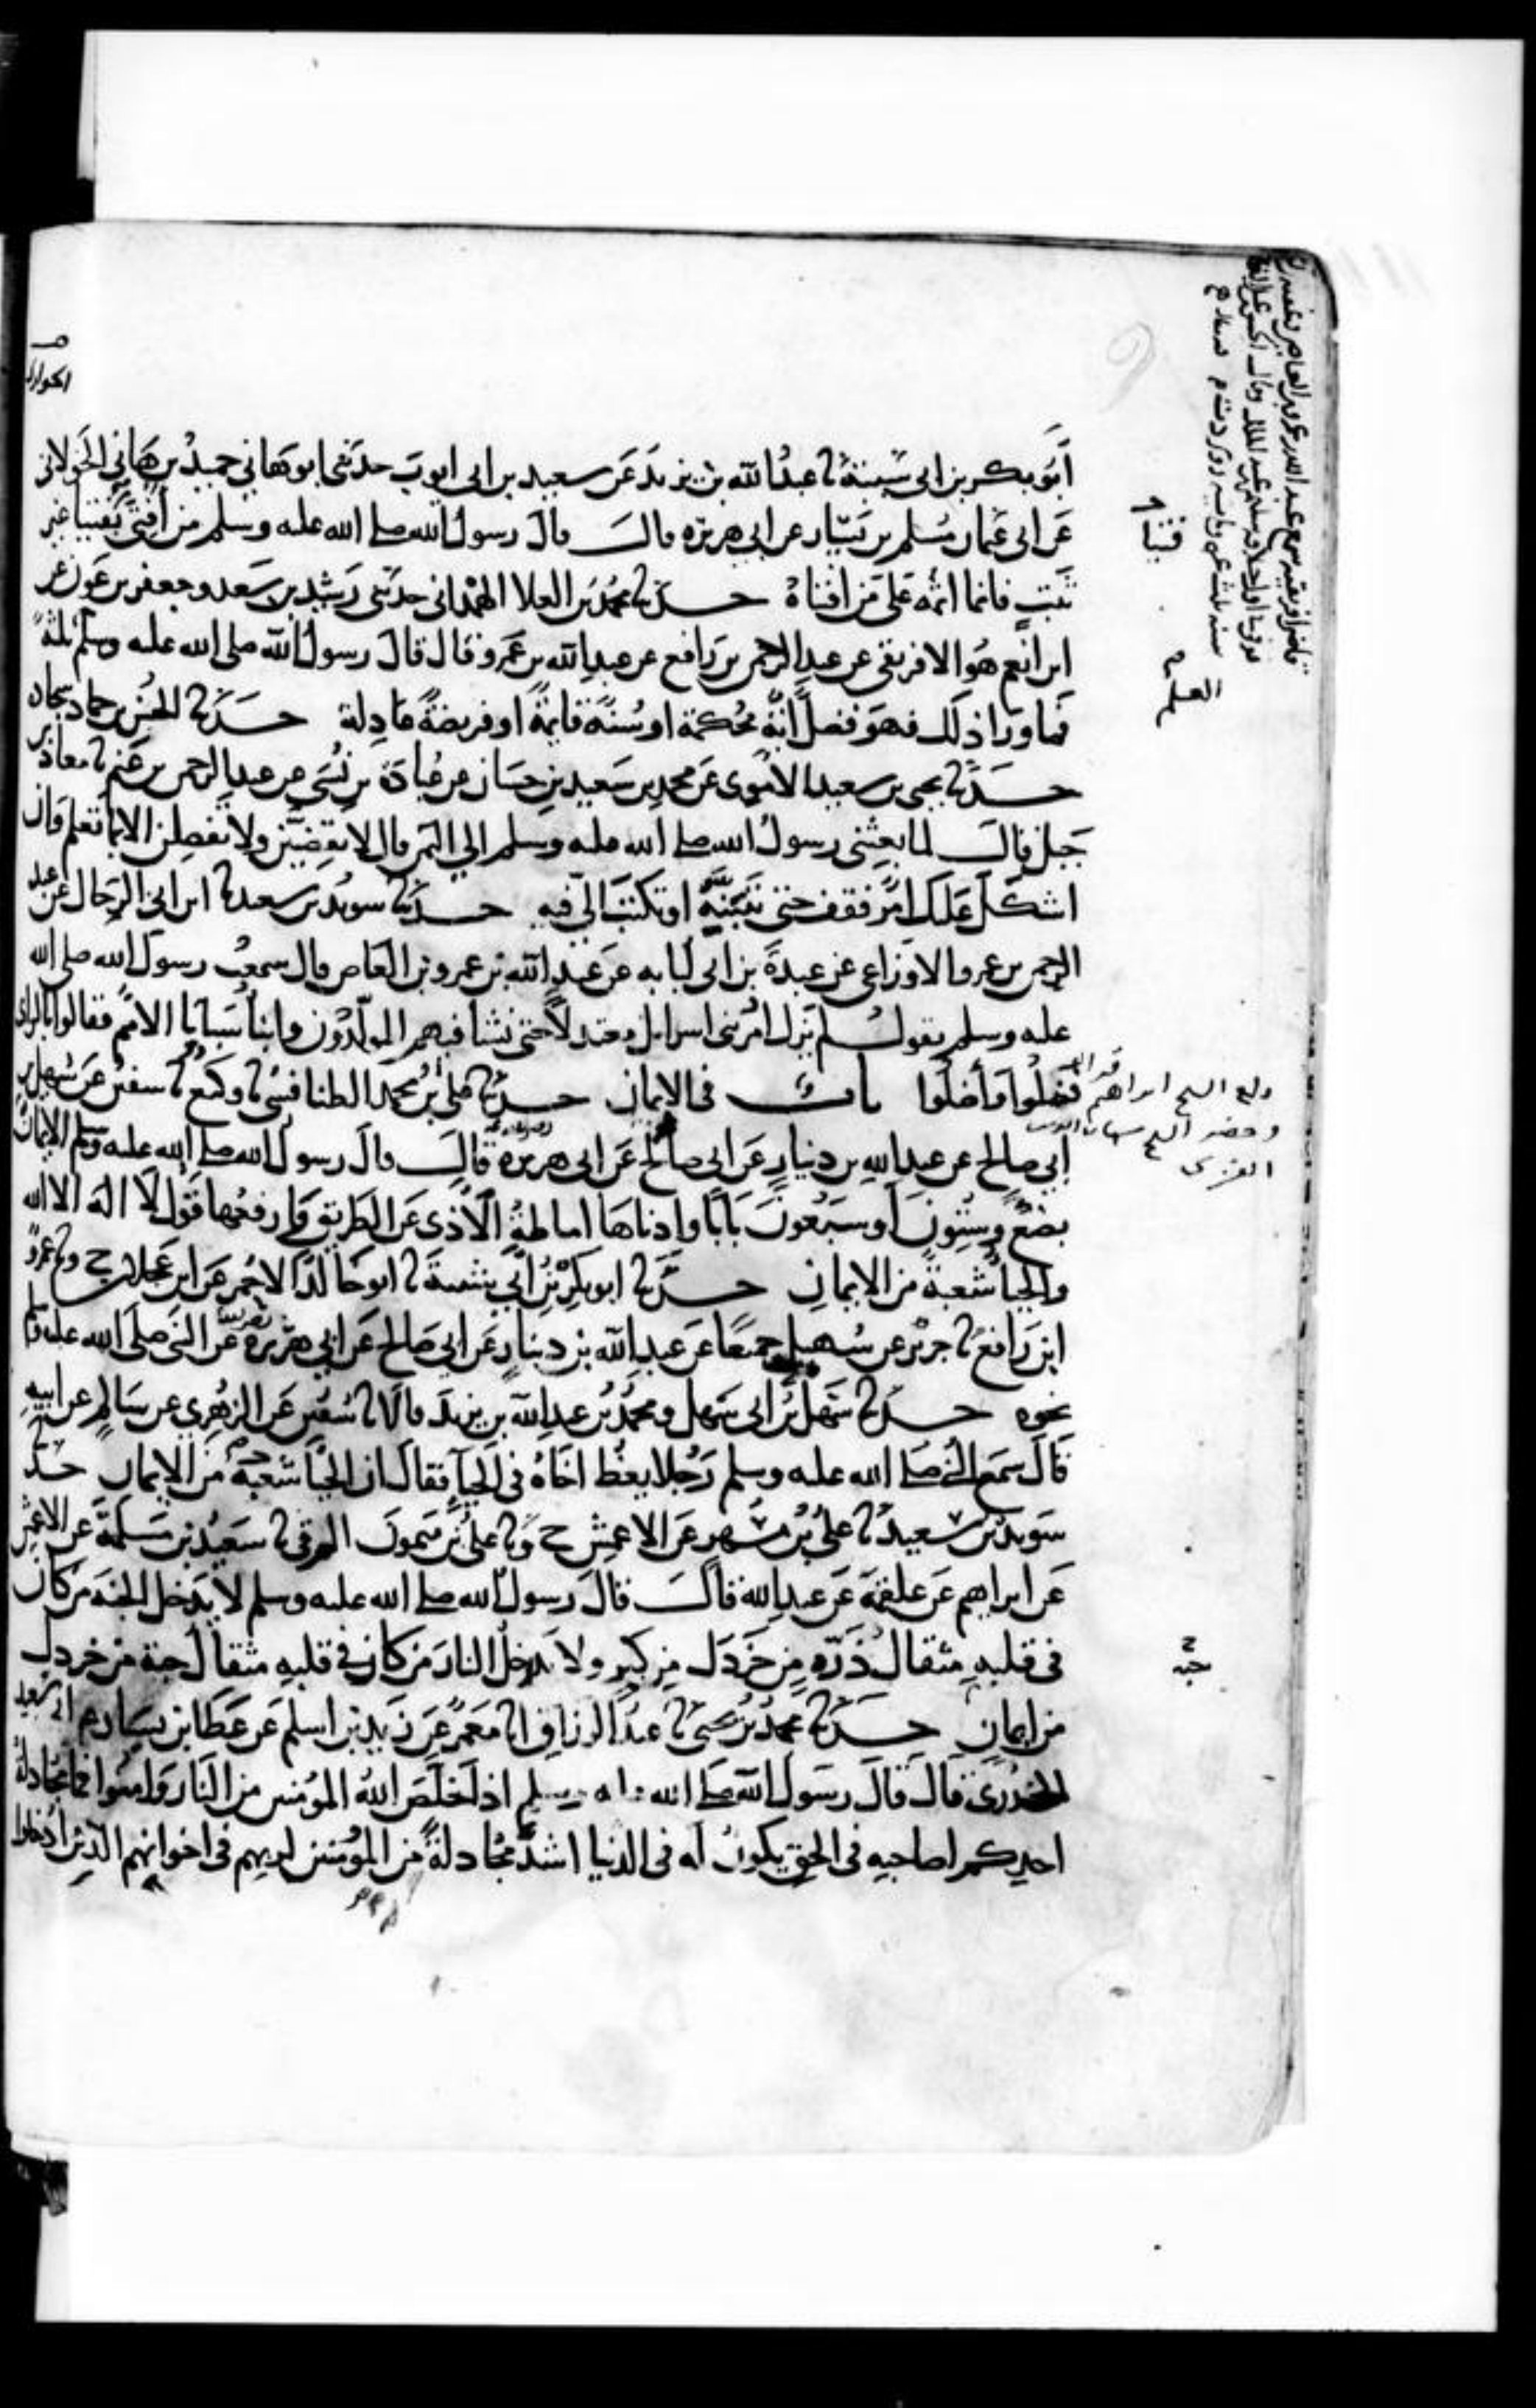 أبو بكر بن ابي شيبة ثنا عبد الله بن يزيد عن سعيد بن ابي ايوب حدثني ابو هاني حميد بن هاني الخولاني
عن ابي عثمان مسلم بن يسار عن ابي هريرة قال قال رسول الله صلى الله عليه وسلم من أفتي بفتيا غير
ثبت فانما اثمه على من افتاه حدثنا محمد بن العلا الهمداني حدثني رشدين بن سعد وجعفر بن عون عن
ابن انعم هو الافريقي عن عبد الرحمن بن رافع عن عبد الله بن عمرو قال قال رسول الله صلى الله عليه وسلم ثلثة
فما ورا ذلك فهو فضل آية محكمة او سنة قايمة او فريضة عادلة حدثنا الحسن بن حماد سجاده
حدثنا يحيى بن سعيد الاموي عن محمد بن سعيد بن حسان عن عبادة بن نسي عن عبد الرحمن بن غنم ثنا معاذ بن
جبل قال لما بعثني رسول الله صلى الله عليه وسلم الي اليمن قال لا تقضين ولا تفصلن الا بما تعلم وان
اشكل عليك امر فقف حتى تبينه او تكتب الي فيه حدثنا سويد بن سعيد ثنا ابن ابي الرجال عن عبد
الرحمن بن عمرو الاوزاعي عن عبدة بن ابي لبابه عن عبد الله بن عمرو بن العاص قال سمعت رسول الله صلى الله
عليه وسلم يقول لم يزل امر بني اسرايل معتدلا حتى نشا فيهم المولدون وابنا سبايا الامم فقالوا بالراي
فضلوا وأضلوا باب في الايمان حدثنا علي بن محمد الطنافسي ثنا وكيع ثنا سفين عن سهيل بن
أبي صالح عن عبد الله بن دينار عن ابي صالح عن ابي هريرة قال قال رسول الله صلى الله عليه وسلم الايمان
بضع وستون او سبعون بابا وادناها اماطة الاذى عن الطريق وارفعها قول لا اله الا الله
والحيا شعبة من الايمان حدثنا ابو بكر بن ابي شيبة ثنا ابو خالد الاحمر عن ابن عجلان ح وثنا عمرو
ابن رافع ثنا جرير عن سهيل جميعا عن عبد الله بن دينار عن ابي صالح عن ابي هريرة عن النبي صلى الله عليه وسلم
نحوه حدثنا سهل بن ابي سهل ومحمد بن عبد الله بن يزيد قالا ثنا سفين عن الزهري عن سالم عن ابيه
قال سمع النبي صلى الله عليه وسلم رجلا يعظ اخاه في الحيا فقال ان الحيا شعبة من الايمان حدثنا
سويد بن سعيد ثنا علي بن مسهر عن الاعمش ح وثنا علي بن ميمون الرقي ثنا سعيد بن مسلمة عن الاعمش
عن ابراهيم عن علقمة عن عبد الله قال قال رسول الله صلى الله عليه وسلم لا يدخل الجنة من كان
في قلبه مثقال ذرة من خردل من كبر ولا يدخل النار من كان في قلبه مثقال حبة من خردل
من ايمان حدثنا محمد بن يحيى ثنا عبد الرزاق انا معمر عن زيد بن اسلم عن عطا بن يسار عن ابي سعيد
الخدري قال قال رسول الله صلى الله عليه وسلم اذا خلص الله المومنين من النار وامنوا فما مجادلة
احدكم لصاحبه في الحق يكون له في الدنيا اشد مجادلة من المومنين لربهم في اخوانهم الذين ادخلوا
فتيا
العلم
حبه